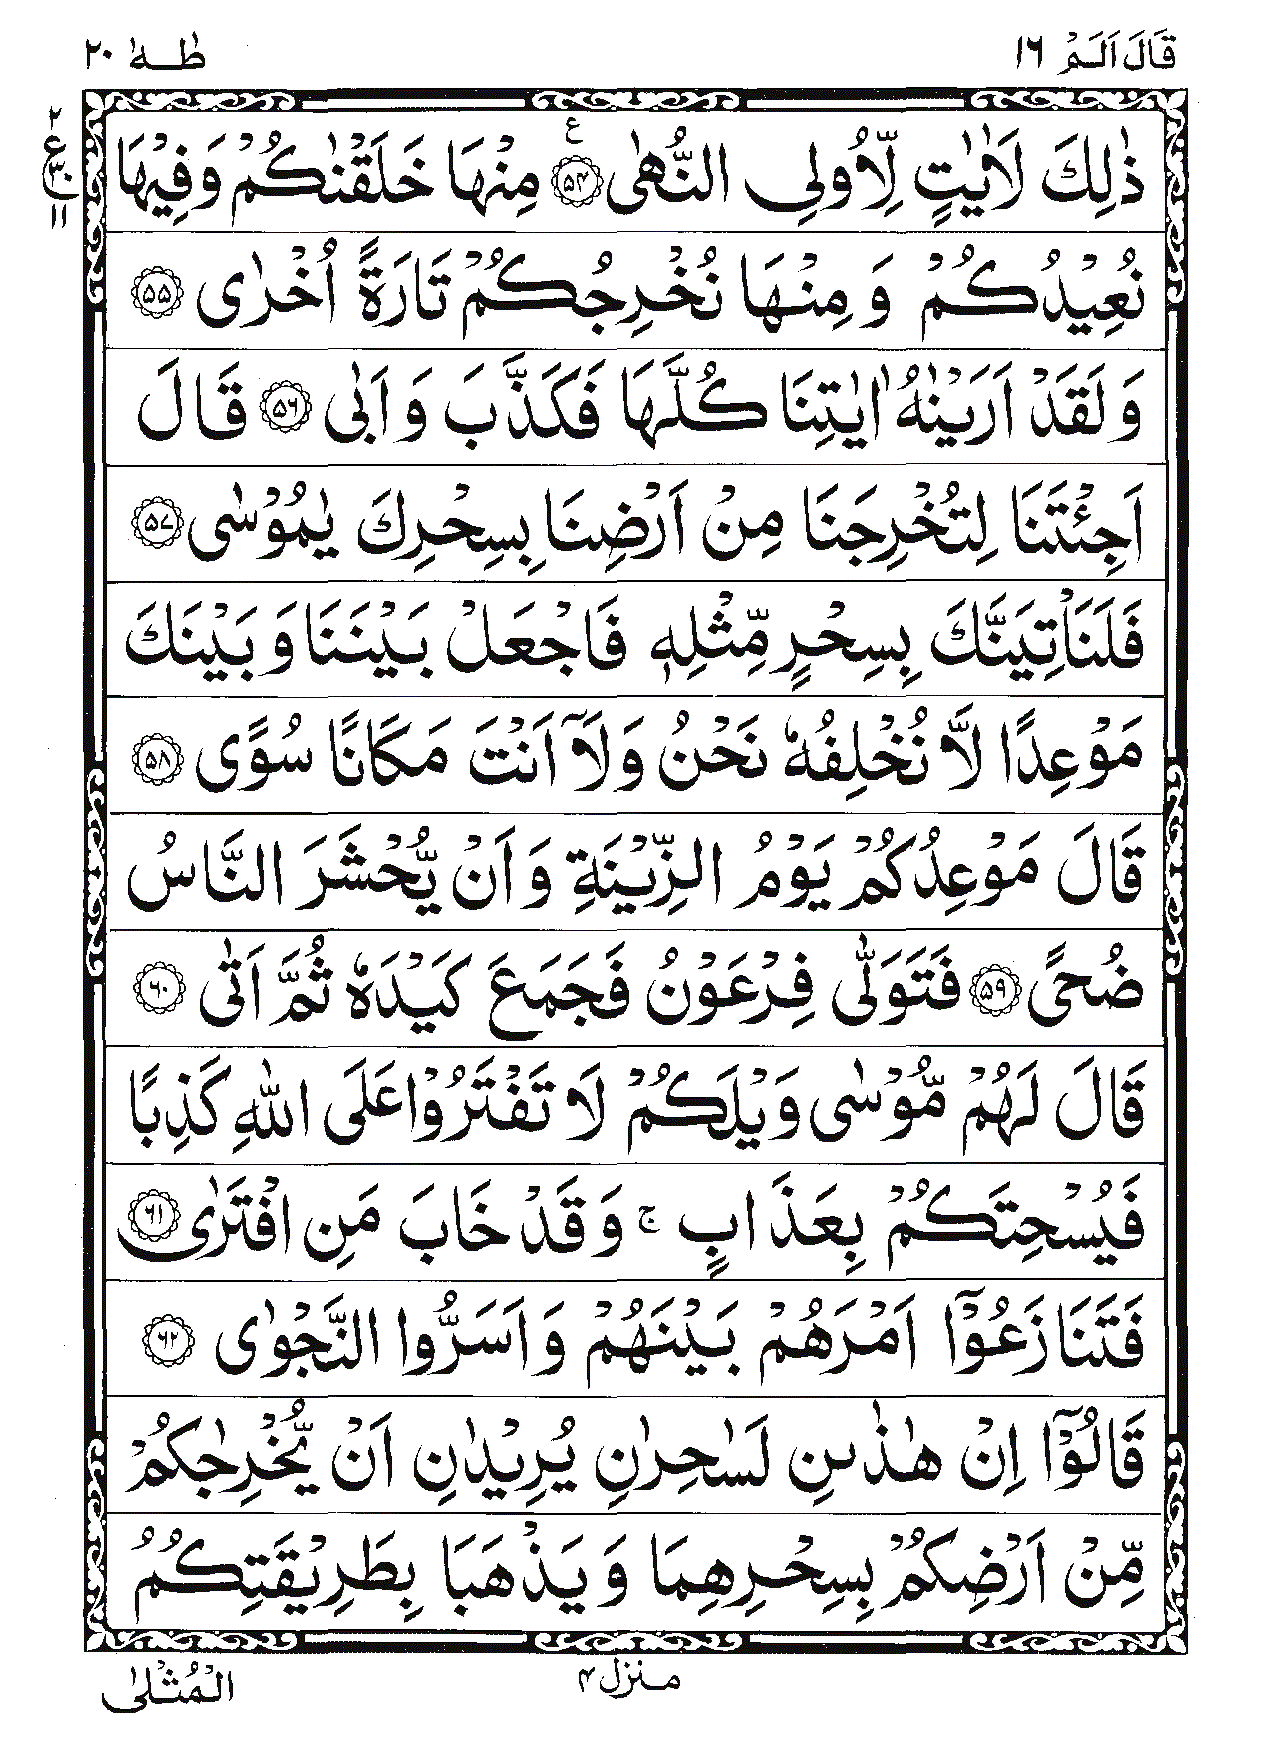 قَالَ اَلَمْ ١٦
طٰهٰ ٢٠
ذٰلِكَ لَاٰيٰتٍ لِّاُولِى النُّهٰى ﴿۵۴﴾ ع مِنْهَا خَلَقْنٰكُمْ وَفِيْهَا
٢ ع ٣٠ ١١
نُعِيْدُكُمْ وَ مِنْهَا نُخْرِجُكُمْ تَارَةً اُخْرٰى ﴿۵۵﴾
وَ لَقَدْ اَرَيْنٰهُ اٰيٰتِنَا كُلَّهَا فَكَذَّبَ وَ اَبٰى ﴿۵۶﴾ قَالَ
اَجِئْتَنَا لِتُخْرِجَنَا مِنْ اَرْضِنَا بِسِحْرِكَ يٰمُوْسٰى ﴿۵۷﴾
فَلَنَاْتِيَنَّكَ بِسِحْرٍ مِّثْلِهٖ فَاجْعَلْ بَيْنَنَا وَ بَيْنَكَ
مَوْعِدًا لَّا نُخْلِفُهٗ نَحْنُ وَلَآ اَنْتَ مَكَانًا سُوًى ﴿۵۸﴾
قَالَ مَوْعِدُكُمْ يَوْمُ الزِّيْنَةِ وَ اَنْ يُّحْشَرَ النَّاسُ
ضُحًى ﴿۵۹﴾ فَتَوَلّٰى فِرْعَوْنُ فَجَمَعَ كَيْدَهٗ ثُمَّ اَتٰى ﴿۶۰﴾
قَالَ لَهُمْ مُّوْسٰى وَيْلَكُمْ لَا تَفْتَرُوْا عَلَى اللّٰهِ كَذِبًا
فَيُسْحِتَكُمْ بِعَذَابٍ ۚ وَ قَدْ خَابَ مَنِ افْتَرٰى ﴿۶۱﴾
فَتَنَازَعُوْٓا اَمْرَهُمْ بَيْنَهُمْ وَ اَسَرُّوا النَّجْوٰى ﴿۶۲﴾
قَالُوْٓا اِنْ هٰذٰىنِ لَسٰحِرٰنِ يُرِيْدٰنِ اَنْ يُّخْرِجٰكُمْ
مِّنْ اَرْضِكُمْ بِسِحْرِهِمَا وَ يَذْهَبَا بِطَرِيْقَتِكُمُ
مـنزل ۴
الْمُثْلٰى